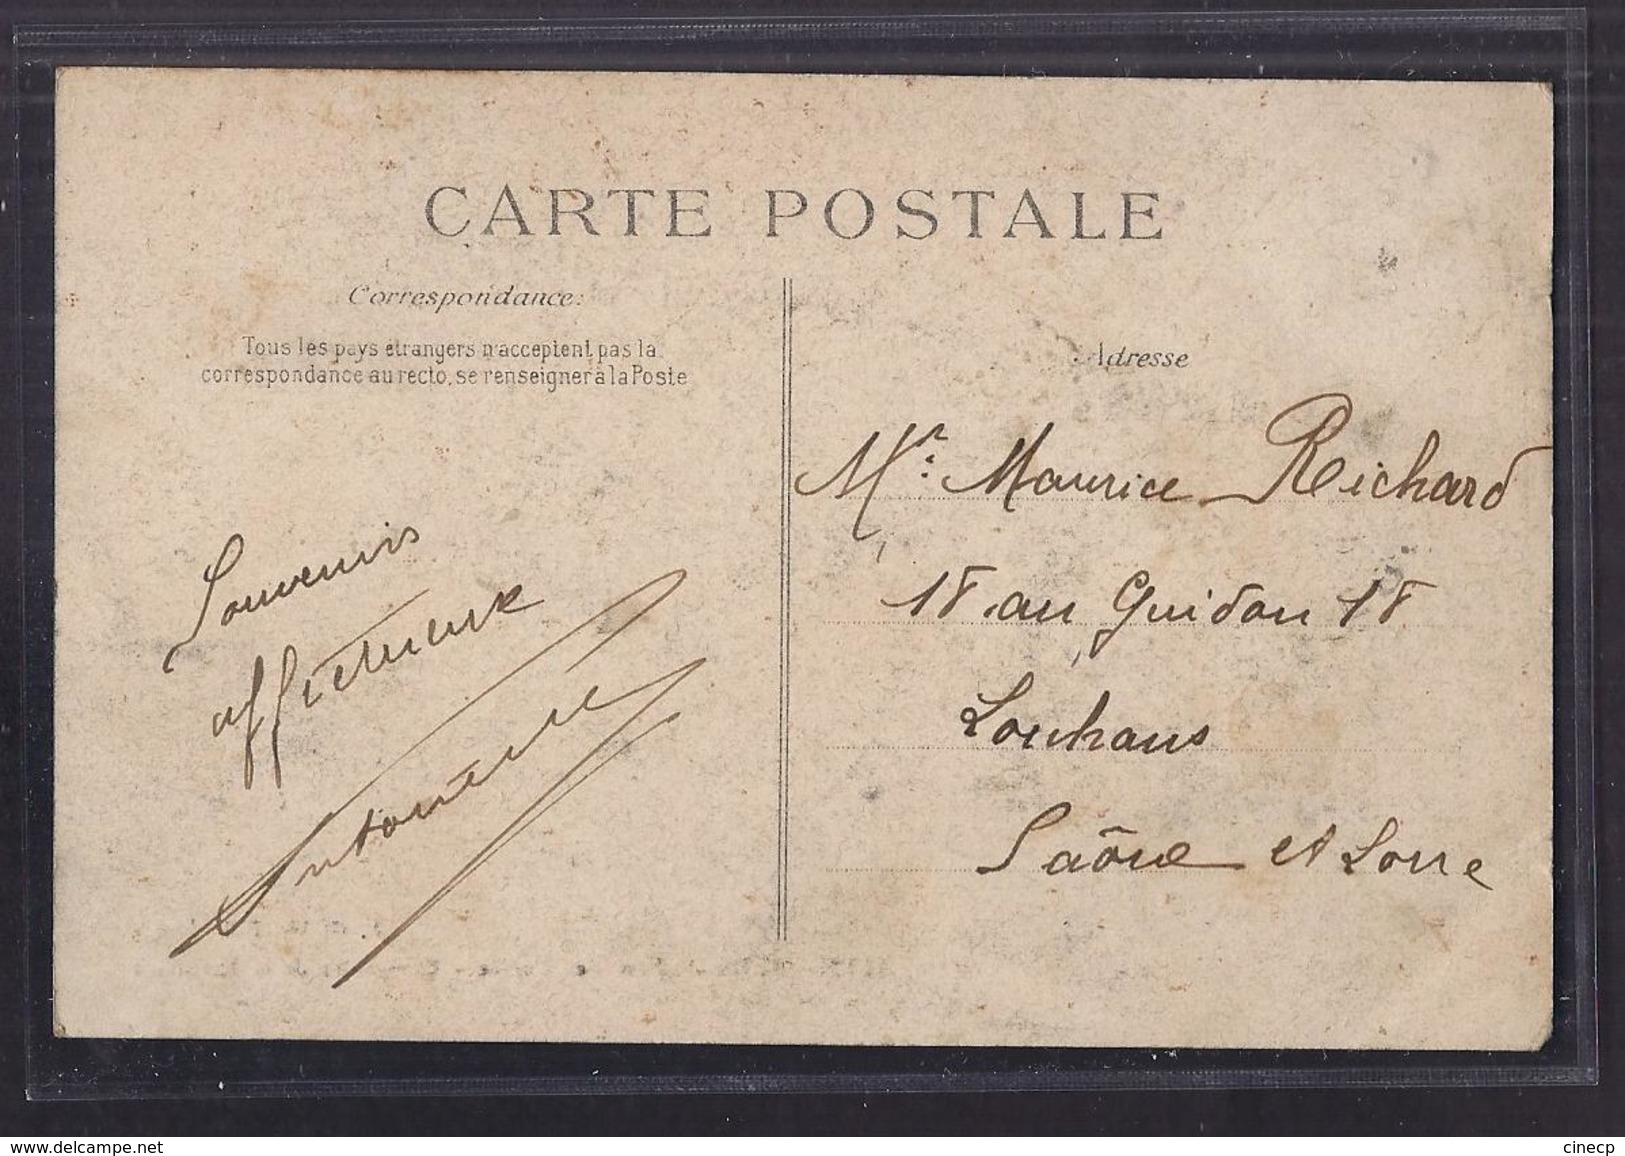 CARTE POSTALE
Correspondance:
Tous les pays étrangers n'acceptent pas la
correspondance au recto, se renseigner à la Poste
Souvenirs
affectueux
Antoinette
Adresse
Mr. Maurice Reichard
18 au Guidon 18
Louhans
Saône et Loire
https://www.delcampe.net
cinecp